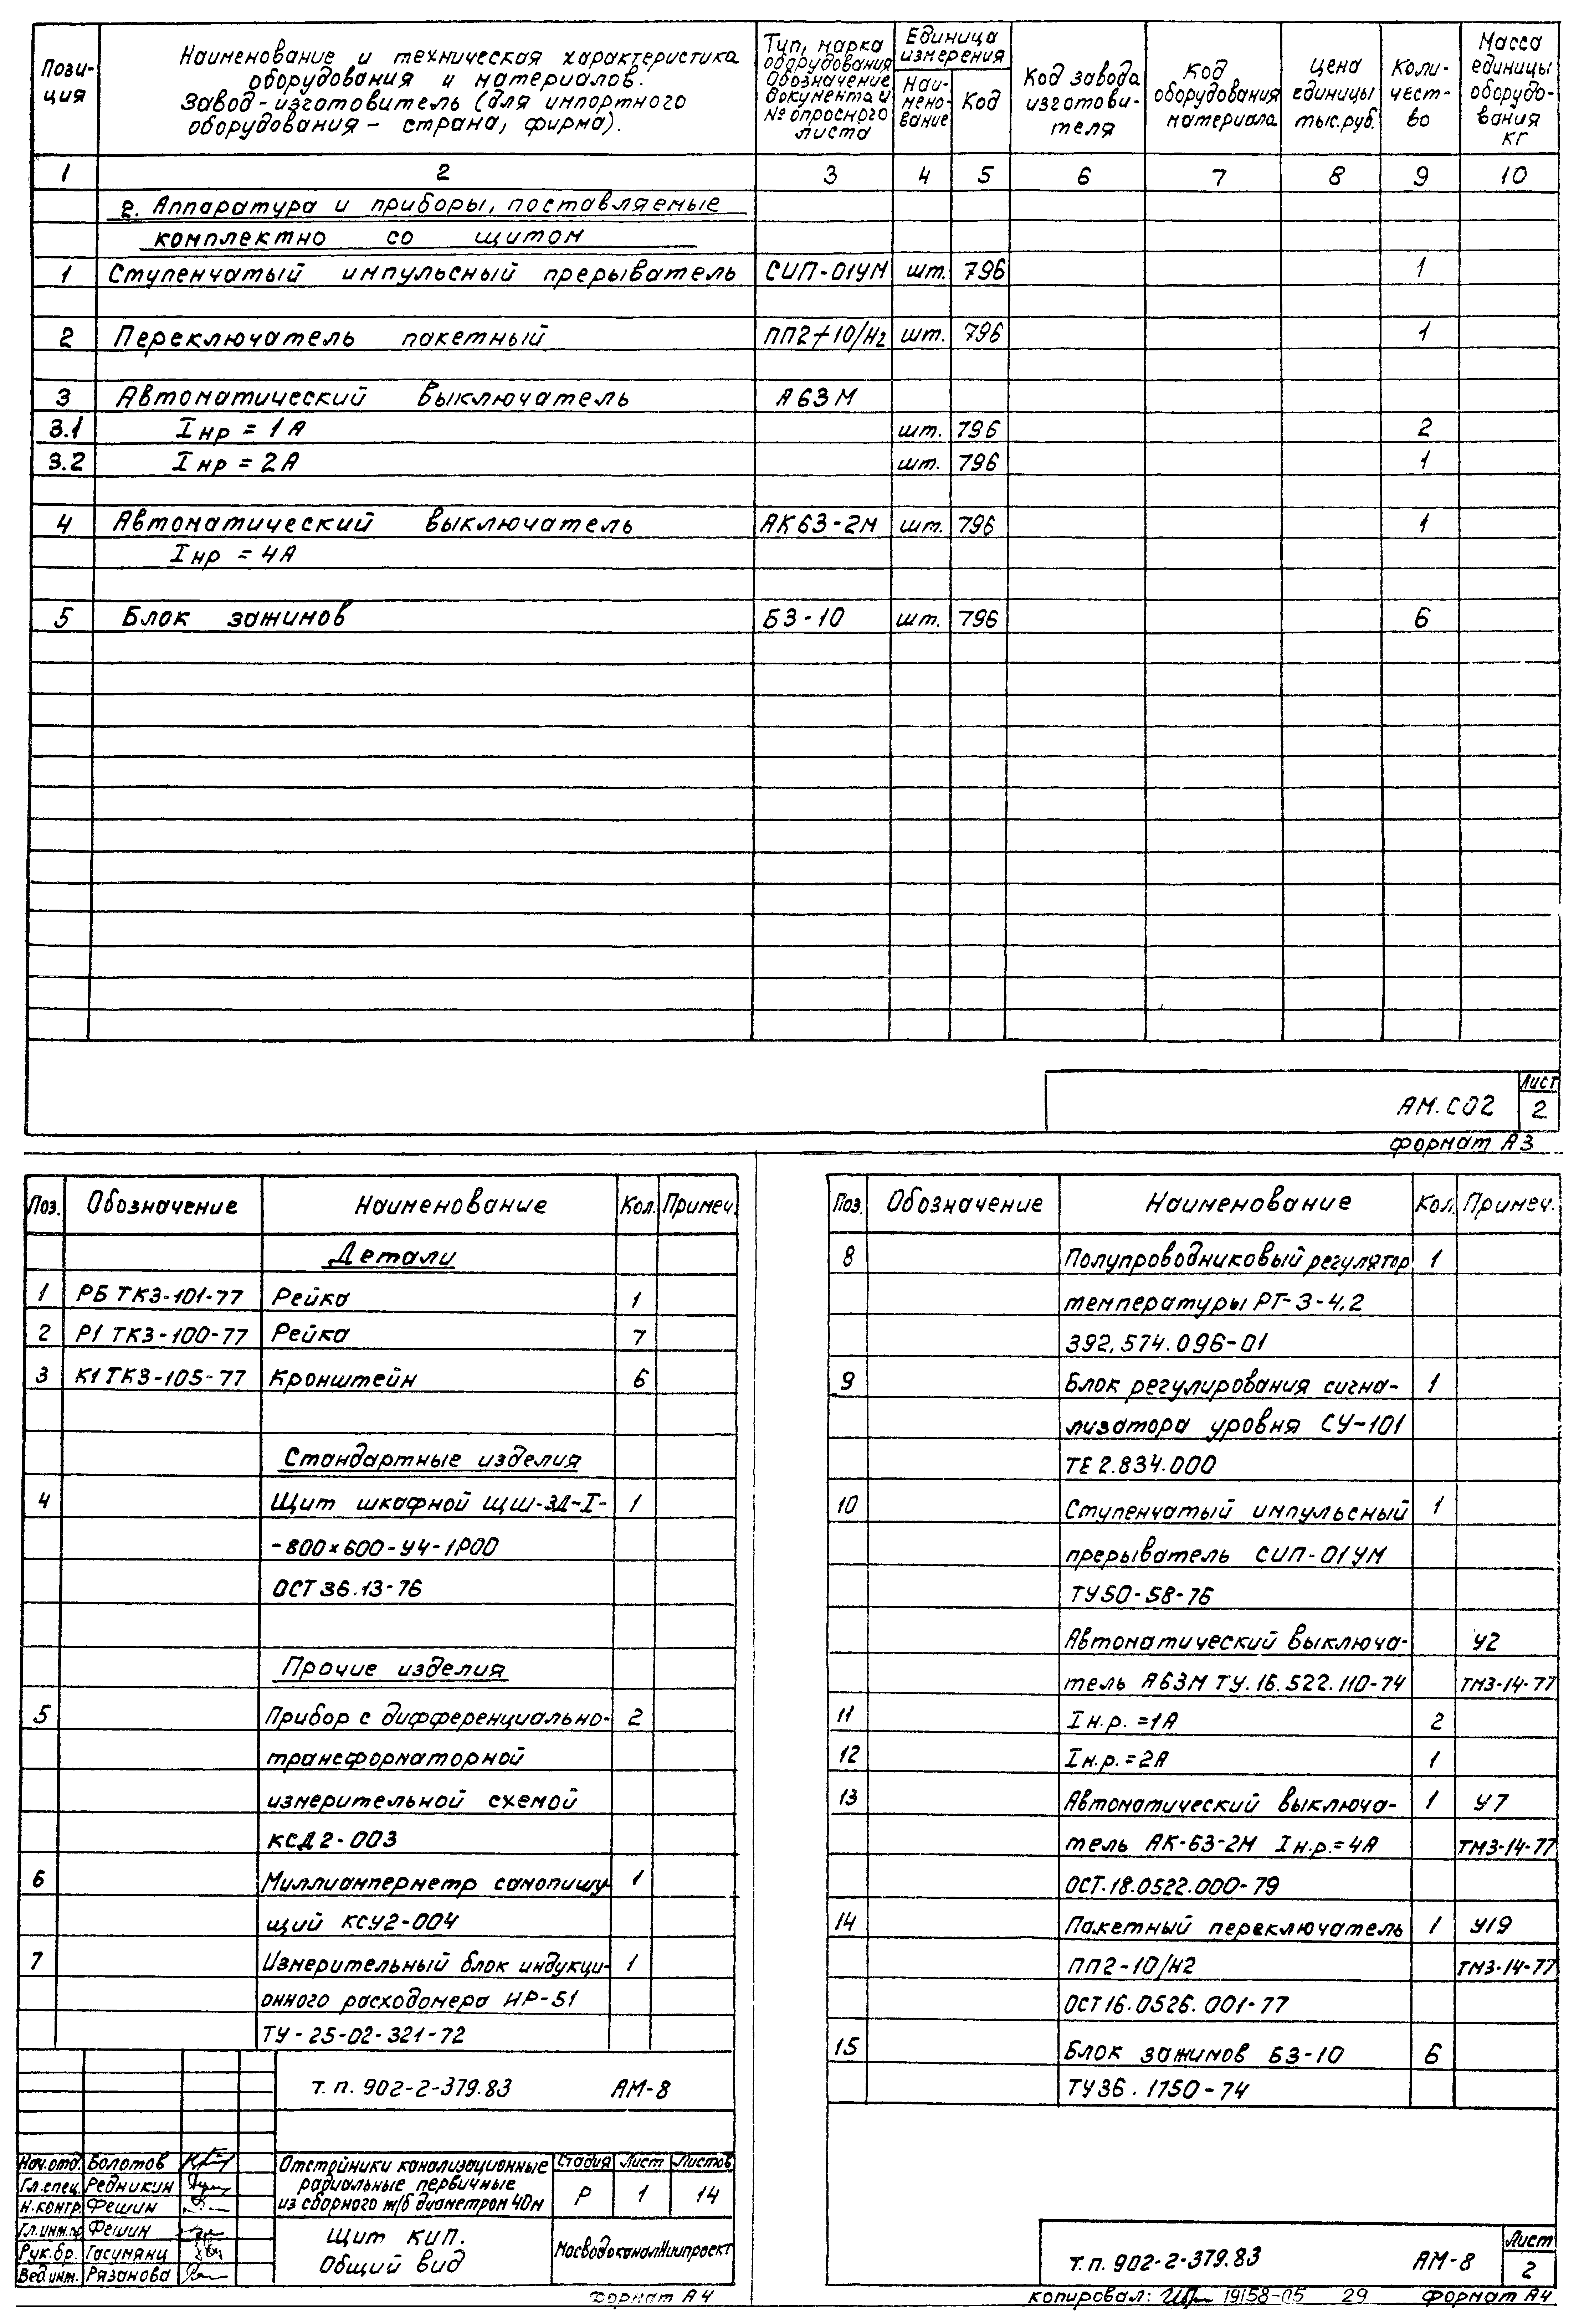 Пози-
ция
Наименование и техническая характеристика
оборудования и материалов.
Завод-изготовитель (для импортного
оборудования - страна, фирма).
Тип, марка
оборудования
Обозначение
документа и
№ опросного
листа
Единица
измерения
Наи-
мено-
вание
Код
Код завода
изготови-
теля
Код
оборудования
материала
Цена
единицы
тыс.руб.
Коли-
чест-
во
Масса
единицы
оборудо-
вания
кг
1 2 3 4 5 6 7 8 9 10
2. Аппаратура и приборы, поставляемые
комплектно со щитом
1 Ступенчатый импульсный прерыватель СИП-01УМ шт. 796 1
2 Переключатель пакетный ПП2-10/Н2 шт. 796 1
3 Автоматический выключатель А63М
3.1 Iнр = 1А шт. 796 2
3.2 Iнр = 2А шт. 796 1
4 Автоматический выключатель АК63-2М шт. 796 1
Iнр = 4А
5 Блок зажимов БЗ-10 шт. 796 6
АМ.СО2
Лист
2
Формат А3
Поз. Обозначение Наименование Кол. Примеч.
Детали
1 РБ ТК3-101-77 Рейка 1
2 Р1 ТК3-100-77 Рейка 7
3 К1 ТК3-105-77 Кронштейн 6
Стандартные изделия
4 Щит шкафной ЩШ-ЗД-I- 1
-800×600-У4-1Р00
ОСТ 36.13-76
Прочие изделия
5 Прибор с дифференциально- 2
трансформаторной
измерительной схемой
КСД2-003
6 Миллиамперметр самопишу- 1
щий КСУ2-004
7 Измерительный блок индукци- 1
онного расходомера ИР-51
ТУ-25-02-321-72
т.п. 902-2-379.83 АМ-8
Нач.отд. Болотов
Гл.спец. Редникин
Н.контр. Фешин
Гл.инж.пр Фешин
Рук.бр. Гасумянц
Вед.инж. Рязанова
Отстойники канализационные
радиальные первичные
из сборного ж/б диаметром 40м
Стадия Лист Листов
Р 1 14
Щит КИП.
Общий вид
МосводоканалНИИпроект
Формат А4
Поз. Обозначение Наименование Кол. Примеч.
8 Полупроводниковый регулятор 1
температуры РТ-3-4,2
392.574.096-01
9 Блок регулирования сигна- 1
лизатора уровня СУ-101
ТЕ2.834.000
10 Ступенчатый импульсный 1
прерыватель СИП-01УМ
ТУ50-58-76
Автоматический выключа- У2
тель А63М ТУ.16.522.110-74 ТМ3-14-77
11 Iн.р.=1А 2
12 Iн.р.=2А 1
13 Автоматический выключа- 1 У7
тель АК-63-2М Iн.р.=4А ТМ3-14-77
ОСТ.18.0522.000-79
14 Пакетный переключатель 1 У19
ПП2-10/Н2 ТМ3-14-77
ОСТ16.0526.001-77
15 Блок зажимов БЗ-10 6
ТУ36.1750-74
т.п. 902-2-379.83 АМ-8
Лист
2
копировал: 19158-05 29 Формат А4